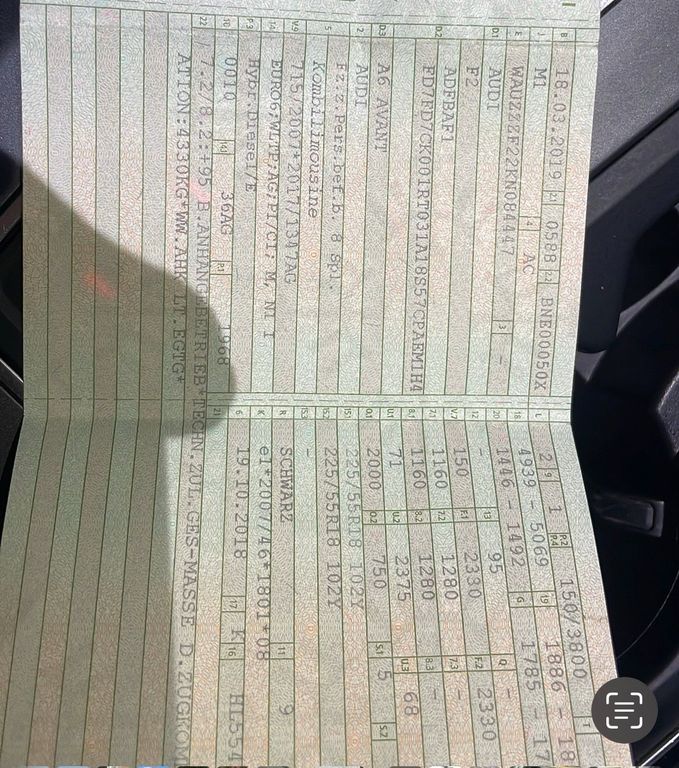 B 18.03.2019 2.1 0588 2.2 BNE00050X
J M1 4 AC
E WAUZZZF22KN084447 3 -
D.1 AUDI
D.2 F2
ADFBAF1
FD7FD7CK001RT031A18S57CPAEM1H4
D.3 A6 AVANT
2 AUDI
5 Fz.z.Pers.bef.b. 8 Spl.
Kombilimousine
V.9 715/2007*2017/1347AG
14 EURO6;WLTP;AG;
P.3 Hybr.Diesel/E
10 0010 14.1 36AG P.1 1968
22 7.2/8.2:+95 B.ANHÄNGEBETRIEB*TECHN.ZUL.GES-MASSE D.ZUGKOM
ATION:4330KG*WW.AHK LT.EGTG*
L 2 9 1 P.2 P.4 150/3800
18 4939 - 5069 19 1886 - 18
20 1446 - 1492 G 1785 - 17
12 - 13 95 Q -
V.7 150 F.1 2330 F.2 2330
7.1 1160 7.2 1280 7.3 -
8.1 1160 8.2 1280 8.3 -
U.1 71 U.2 2375 U.3 68
O.1 2000 O.2 750 S.1 5 S.2
15.1 225/55R18 102Y
15.2 225/55R18 102Y
15.3 -
R SCHWARZ 11 9
K e1*2007/46*1801*08
6 19.10.2018 17 K 16 HL554
21